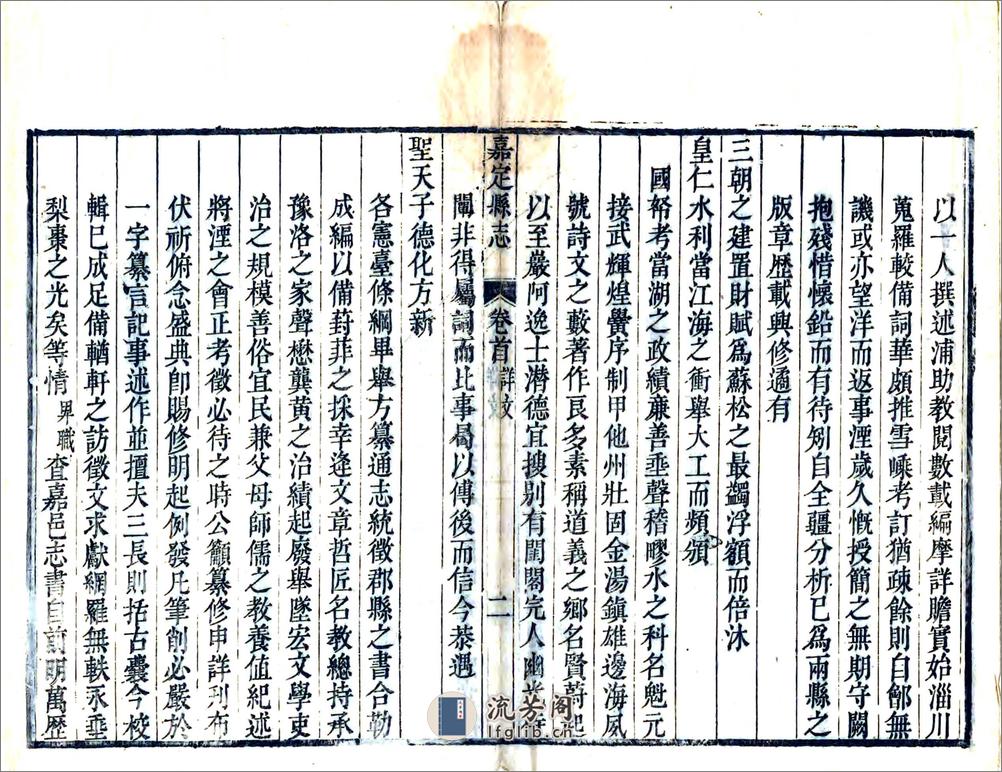 以一人撰述浦助教閱數載編摩詳贍實始淄川
蒐羅較備詞華頗推雪嵊考訂猶疎餘則自鄶無
譏或亦望洋而返事湮歲久慨授簡之無期守闕
抱殘惜懷鉛而有待矧自全疆分析已為兩縣之
版章歷載興修遹有
三朝之建置財賦爲蘇松之最蠲浮額而倍沐
皇仁水利當江海之衝舉大工而頻頒
國帑考當湖之政績亷善垂聲稽疁水之科名魁元
接武輝煌黌序制甲他州壯固金湯鎮雄邊海咸
號詩文之藪著作良多素稱道義之鄉名賢蔚起
以至嚴阿逸士潜德宜搜別有閨閣完人幽
闡非得屬詞而比事曷以傳後而信今恭遇
聖天子德化方新
各憲臺條綱畢舉方纂通志統徵郡縣之書合勒
成編以備葑菲之採幸逢文章哲匠名教總持承
豫洛之家聲懋龔黃之治績起廢舉墜宏文學吏
治之規模善俗宜民兼父母師儒之教養值紀述
將湮之會正考徵必待之時公籲纂修申詳刋布
伏祈俯念盛典卽賜修明起例發凡筆削必嚴於
一字纂言記事述作並擅夫三長則括古囊今校
輯已成足備輶軒之訪徵文求獻網羅無軼永垂
梨棗之光矣等情 卑職 查嘉邑志書自前明萬歷
嘉定縣志 卷首 詳文 二
流芳阁
lfglib.cn